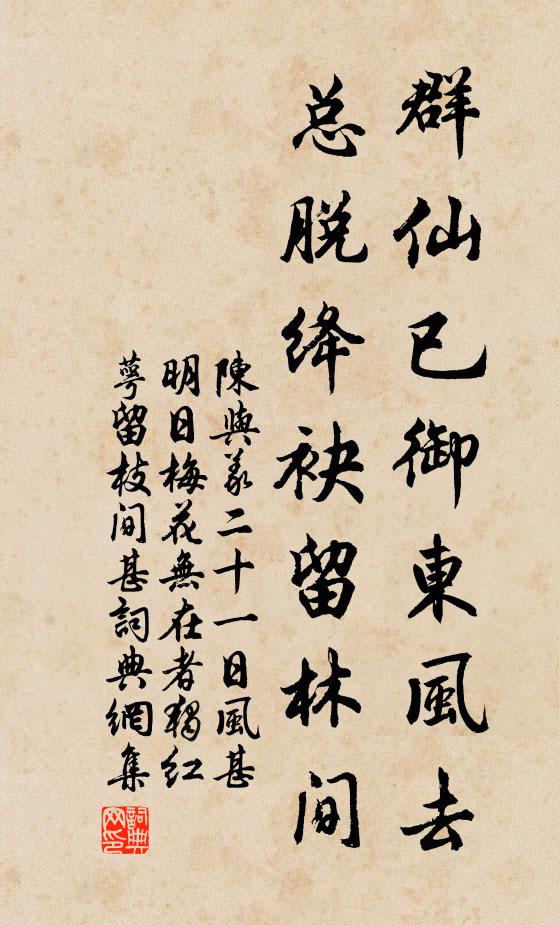 群仙已御東風去
总脱绛袂留林间
陳與義二十一日風甚
明日梅花無在者獨红
萼留枝间甚詞典網集
詞典网印